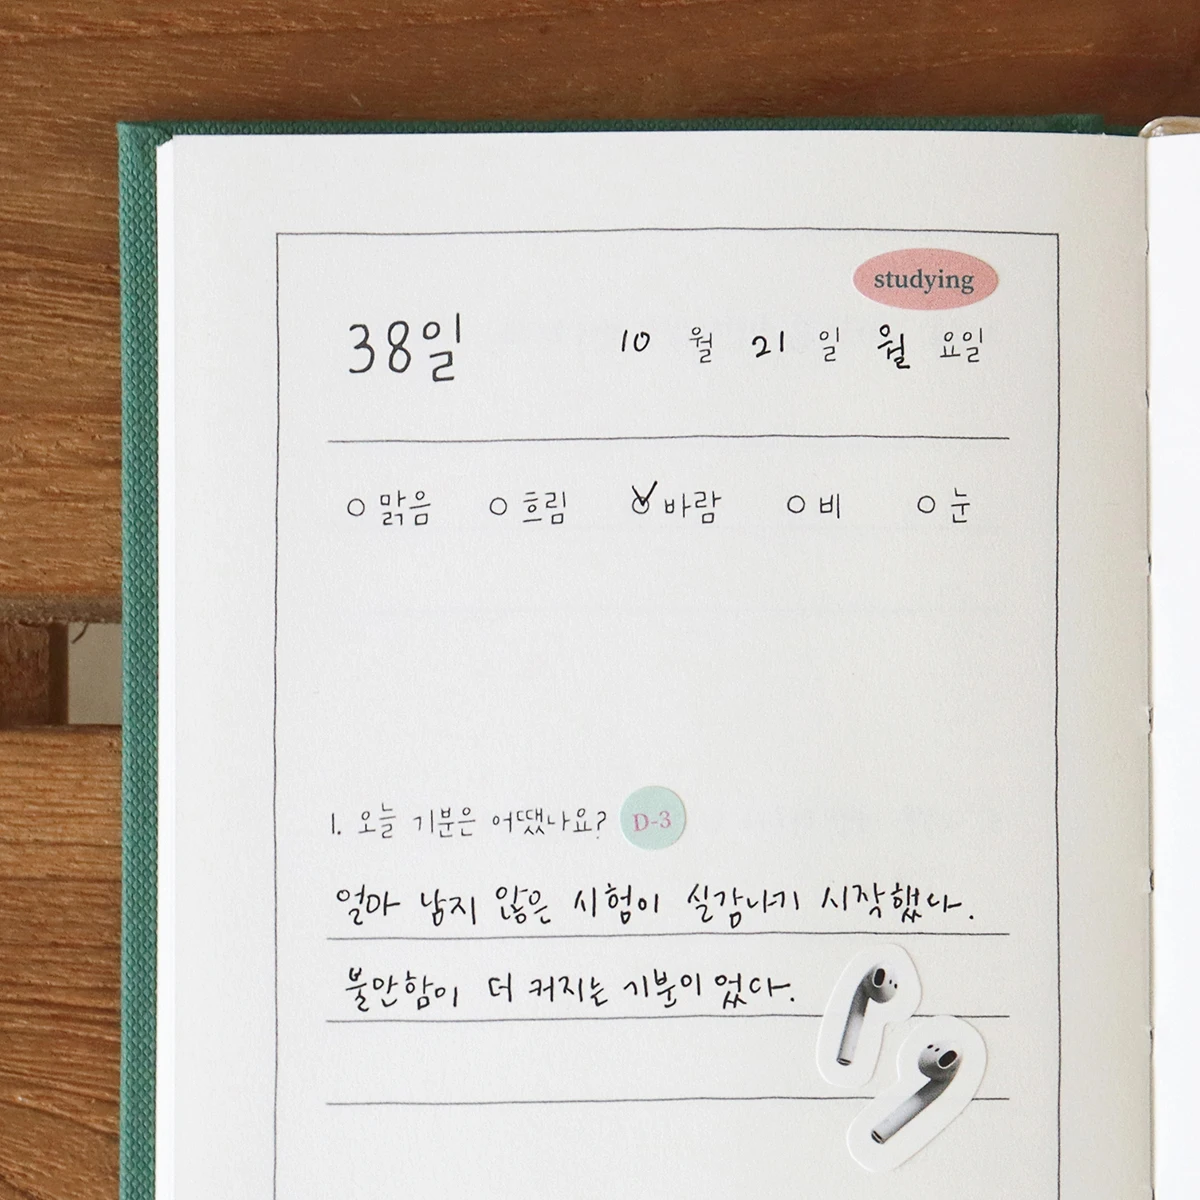 studying
38일 10 월 21 일 월 요일
맑음 흐림 바람 비 눈
1. 오늘 기분은 어땠나요? D-3
얼마 남지 않은 시험이 실감나기 시작했다.
불안함이 더 커지는 기분이었다.